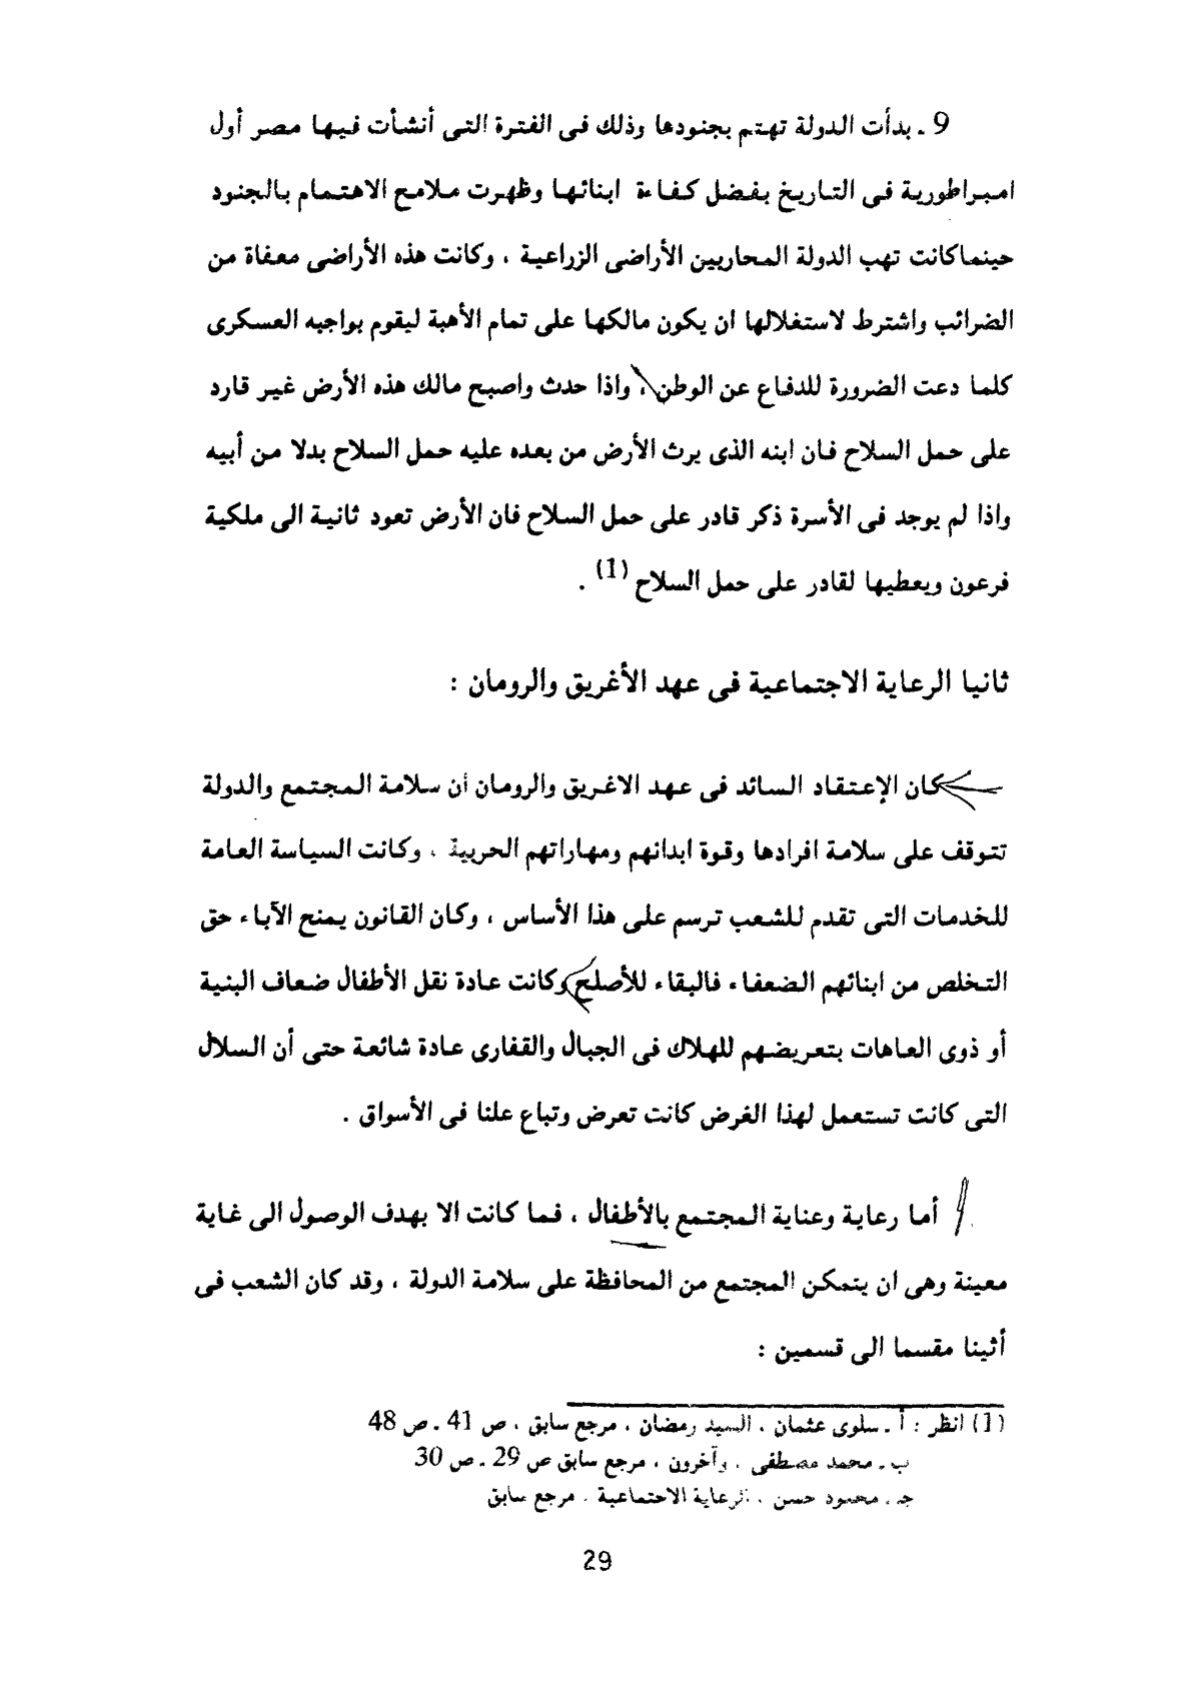 9 ـ بدأت الدولة تهتم بجنودها وذلك فى الفترة التى أنشأت فيها مصر أول
امبراطورية فى التاريخ بفضل كفاءة ابنائها وظهرت ملامح الاهتمام بالجنود
حينماكانت تهب الدولة المحاربين الأراضى الزراعية ، وكانت هذه الأراضى معفاة من
الضرائب واشترط لاستغلالها ان يكون مالكها على تمام الأهبة ليقوم بواجبه العسكرى
كلما دعت الضرورة للدفاع عن الوطن ، واذا حدث واصبح مالك هذه الأرض غير قارد
على حمل السلاح فان ابنه الذى يرث الأرض من بعده عليه حمل السلاح بدلا من أبيه
واذا لم يوجد فى الأسرة ذكر قادر على حمل السلاح فان الأرض تعود ثانية الى ملكية
فرعون ويعطيها لقادر على حمل السلاح (1) .
ثانيا الرعاية الاجتماعية فى عهد الأغريق والرومان :
كان الإعتقاد السائد فى عهد الاغريق والرومان أن سلامة المجتمع والدولة
تتوقف على سلامة افرادها وقوة ابدانهم ومهاراتهم الحربية ، وكانت السياسة العامة
للخدمات التى تقدم للشعب ترسم على هذا الأساس ، وكان القانون يمنح الآباء حق
التخلص من ابنائهم الضعفاء فالبقاء للأصلح وكانت عادة نقل الأطفال ضعاف البنية
أو ذوى العاهات بتعريضهم للهلاك فى الجبال والقفارى عادة شائعة حتى أن السلال
التى كانت تستعمل لهذا الغرض كانت تعرض وتباع علنا فى الأسواق .
أما رعاية وعناية المجتمع بالأطفال ، فما كانت الا بهدف الوصول الى غاية
معينة وهى ان يتمكن المجتمع من المحافظة على سلامة الدولة ، وقد كان الشعب فى
أثينا مقسما الى قسمين :
(1) انظر : أ ـ سلوى عثمان ، السيد رمضان ، مرجع سابق ، ص 41 ـ ص 48
ب ـ محمد مصطفى ، وآخرون ، مرجع سابق ص 29 ـ ص 30
جـ ـ محمود حسن ، الرعاية الاجتماعية ، مرجع سابق
29